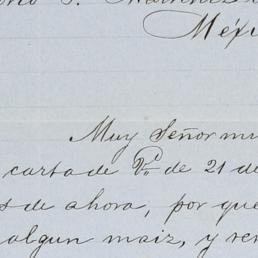 Méxi
Muy Señor mi
carta de Vd. de 21 de
s de ahora, por que
algun maiz, y ven